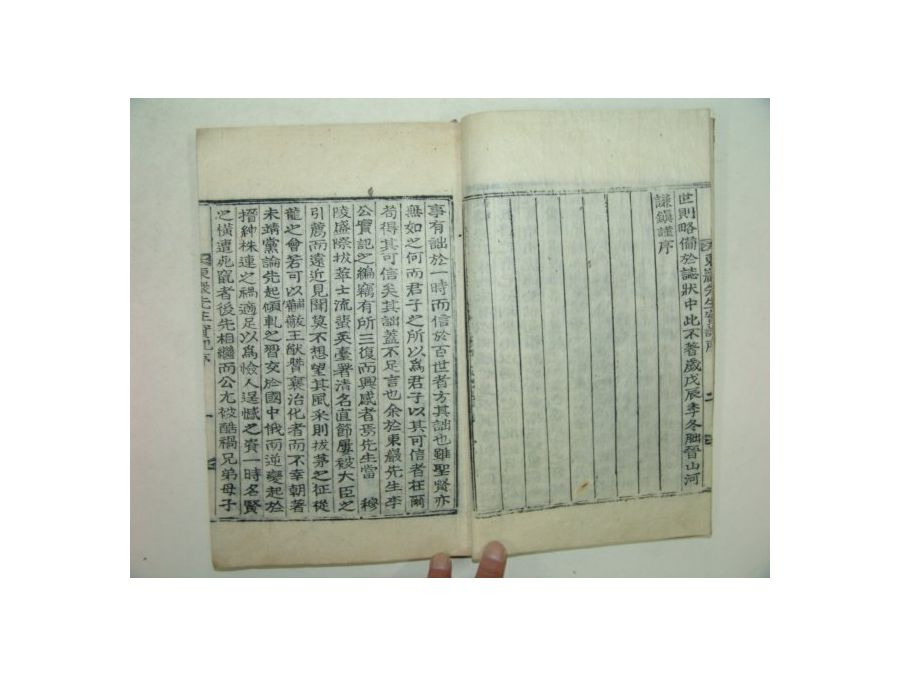 世則略備於誌狀中此不著歲戊辰季冬朏晉山河
謙鎭謹序
東巖先生實記序
二
事有詘於一時而信於百世者方其詘也雖聖賢亦
無如之何而君子之所以爲君子以其可信者在爾
苟得其可信矣其詘蓋不足言也余於東巖先生李
公實記之編竊有所三復而興感者焉先生當 穆
陵盛際拔萃士流蜚英臺署清名直節屢被大臣之
引薦而遠近見聞莫不想望其風采則拔茅之征從
龍之會若可以黼黻王猷贊襄治化者而不幸朝著
未靖黨論先起傾軋之習交於國中俄而逆變起於
搢紳株連之禍適足以爲憸人逞憾之資一時名賢
之橫遭兆竄者後先相繼而公尤被酷禍兄弟母子
東巖先生實記序
一